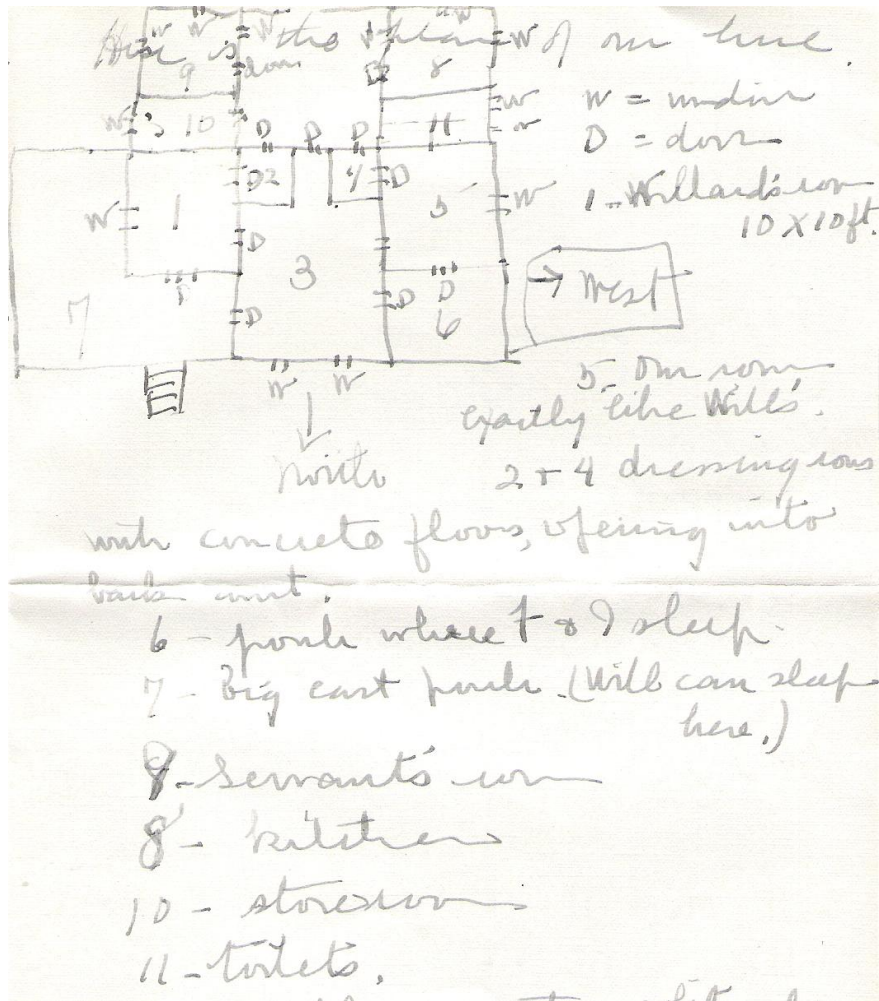 Here is the plan of our house
W = window
D = door
1 - Willard's room
10 X 10 ft.
W W W W
9 door D 8 W
W 10 W
D D D 11 W
D2 4 D
W 1 5 W
D 3
D D
7 D D 6
→ West
W W
5 - Our room
exactly like Will's.
North
2 + 4 dressing rooms
with concrete floors, opening into
back court.
6 - porch where F & I sleep.
7 - Big east porch. (Will can sleep
here.)
9 - Servant's room
8 - kitchen
10 - storeroom
11 - toilets.